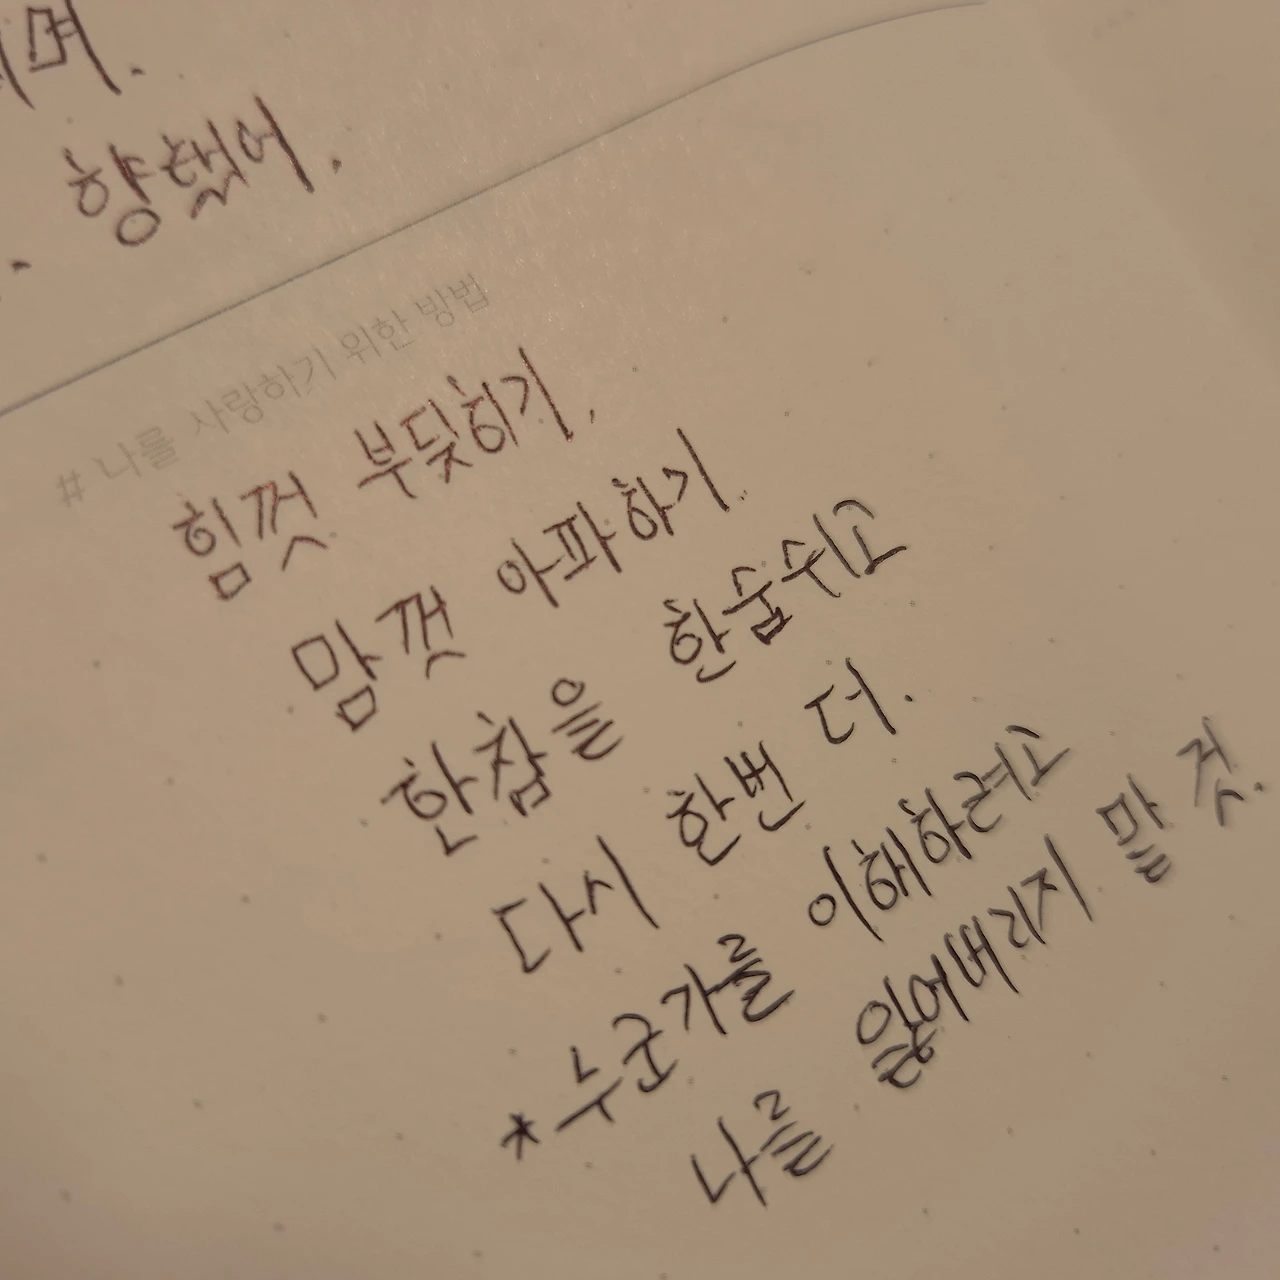 향했어.
# 나를 사랑하기 위한 방법
힘껏 부딪히기.
맘껏 아파하기.
한참을 한숨쉬고
다시 한번 더.
*누군가를 이해하려고
나를 잃어버리지 말 것.